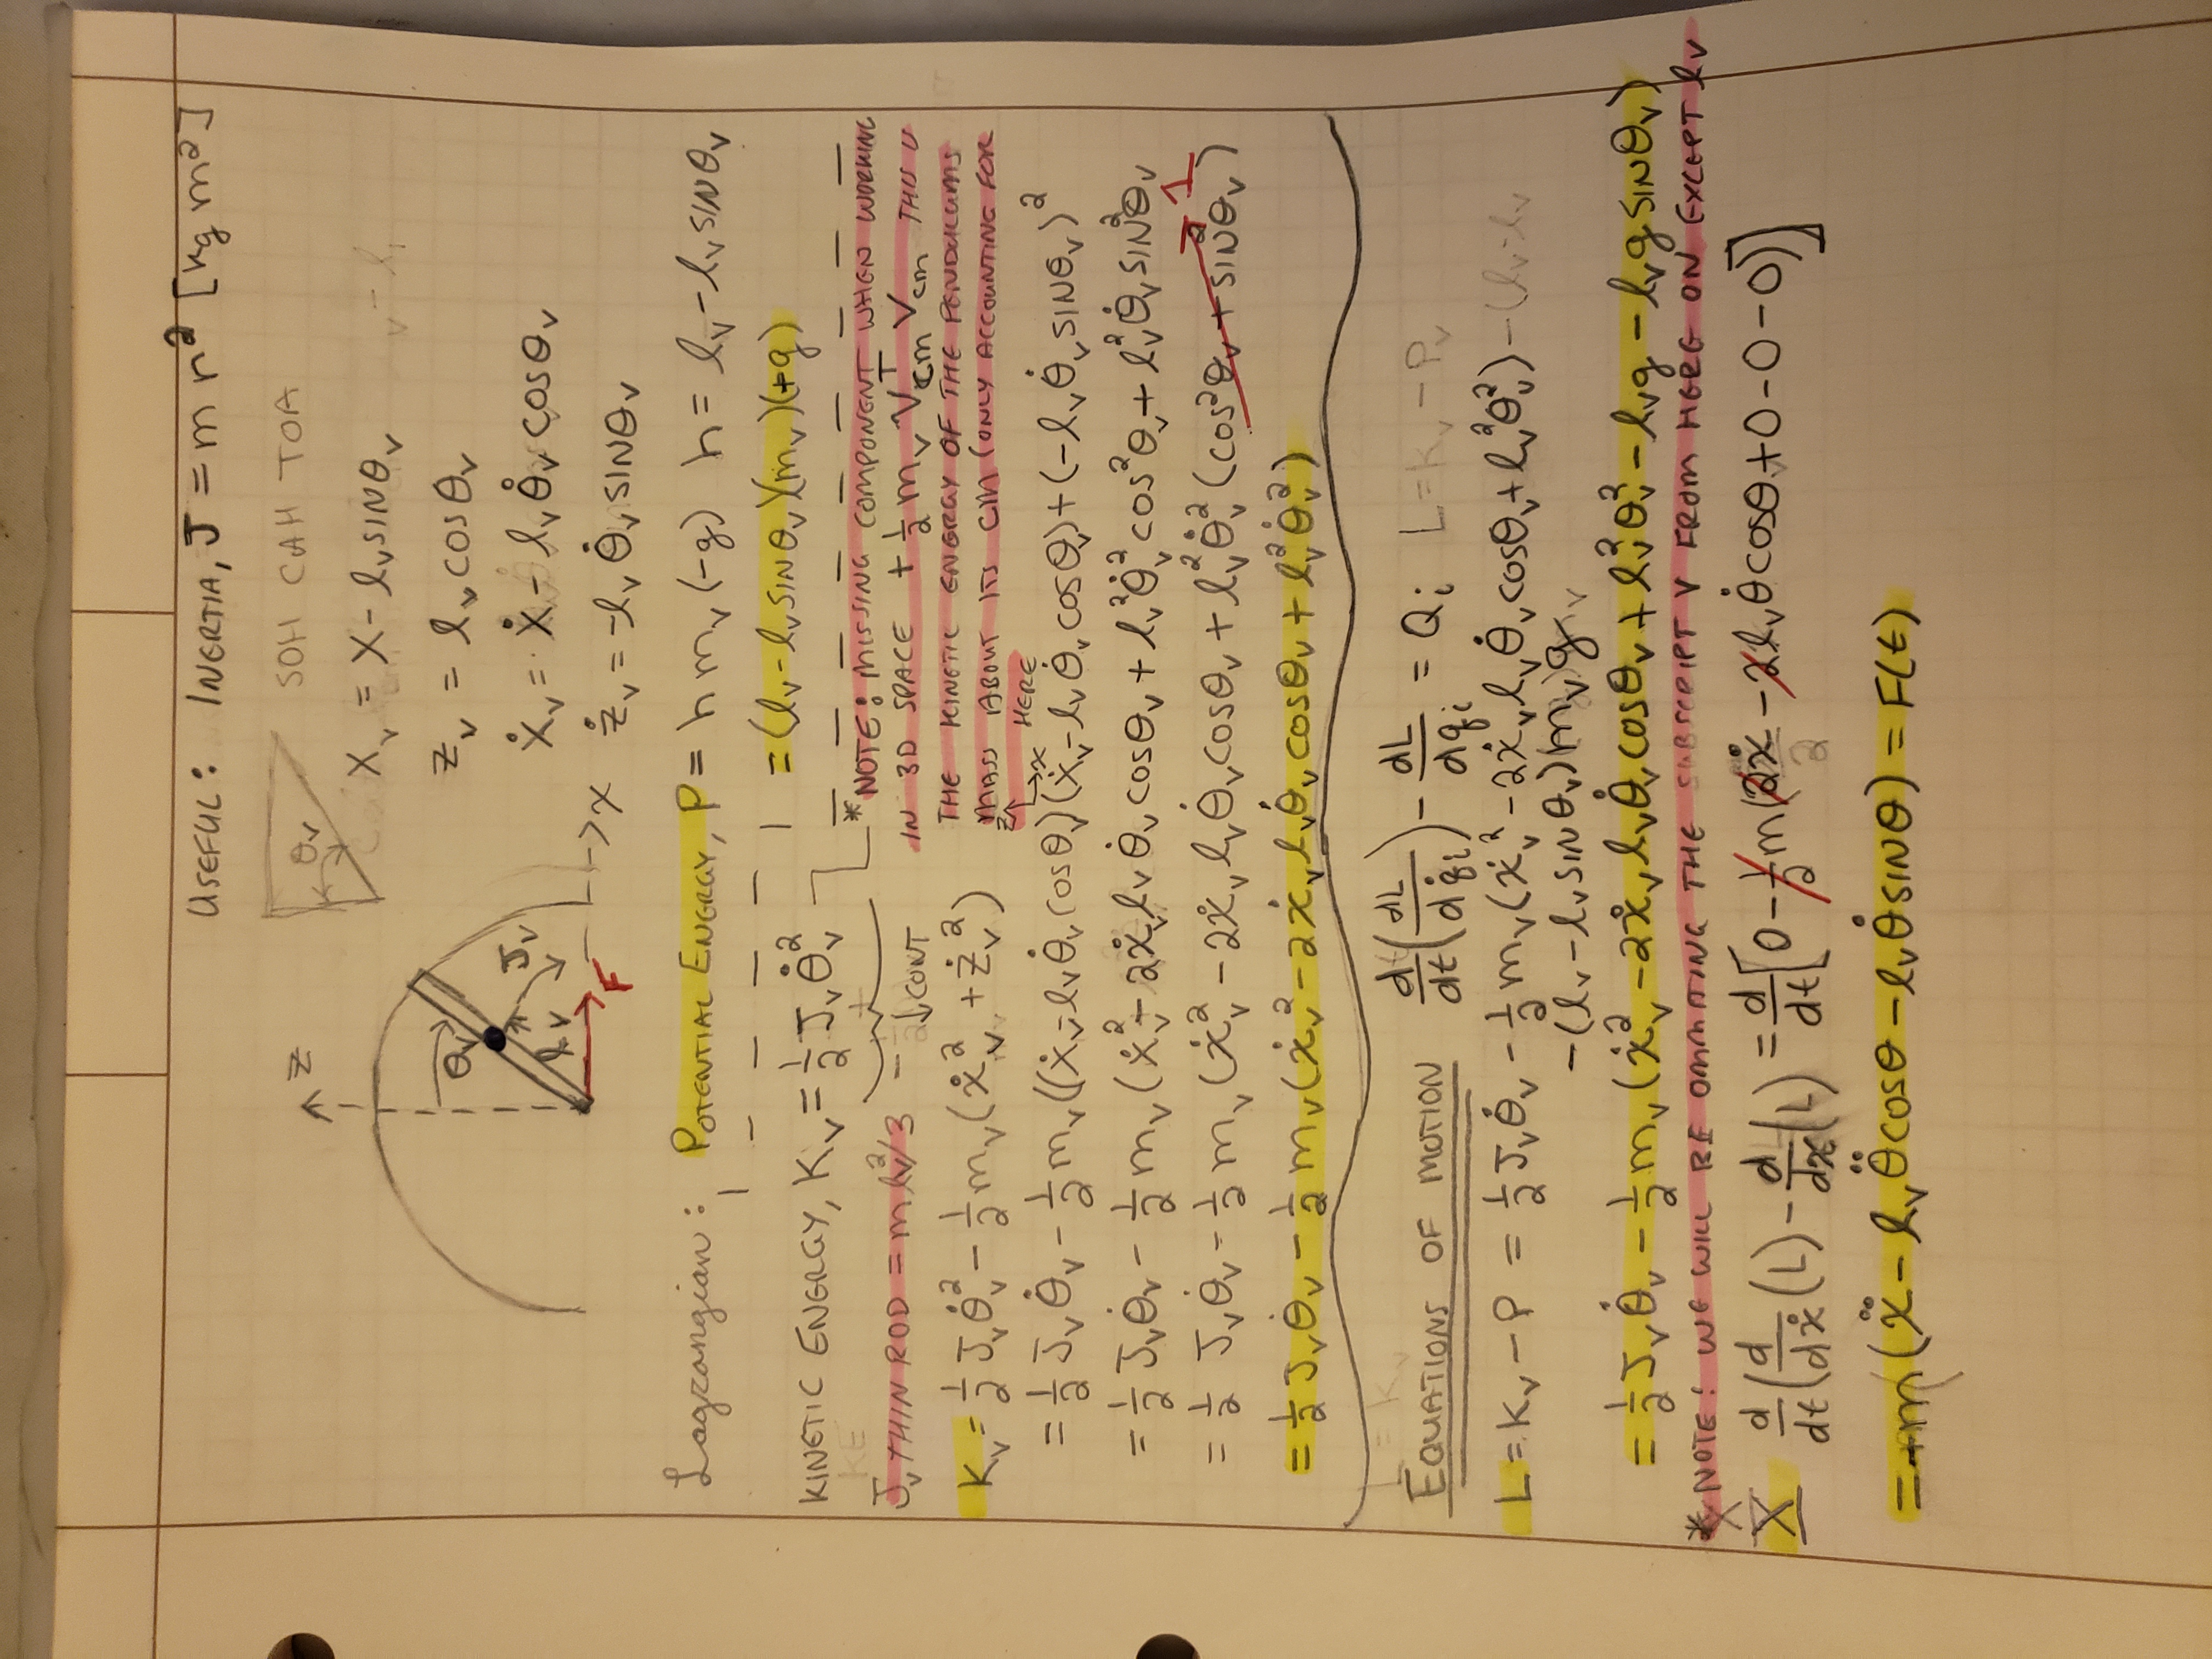 USEFUL: INERTIA, J = m r² [kg m²]
SOH CAH TOA
z
θv
θv
Jv
lv
F
x
xv = x - lv SINθv
zv = lv COSθv
ẋv = ẋ - lv θ̇v COSθv
żv = -lv θ̇v SINθv
Lagrangian: POTENTIAL ENERGY, P = h mv (-g) h = lv - lv SINθv
= (lv - lv SINθv)(mv)(+g)
KINETIC ENERGY, Kv = 1/2 Jv θ̇v²
KE
Jv THIN ROD = m lv²/3
↓CONT
*NOTE: MISSING COMPONENT WHEN WORKING
IN 3D SPACE + 1/2 mv Vcm^T Vcm THIS IS
THE KINETIC ENERGY OF THE PENDULUMS
MASS ABOUT ITS CM (ONLY ACCOUNTING FOR
z x HERE
Kv = 1/2 Jv θ̇v² - 1/2 mv (ẋv² + żv²)
= 1/2 Jv θ̇v - 1/2 mv((ẋv - lv θ̇v cosθv)(ẋv - lv θ̇v cosθv) + (-lv θ̇v SINθv)²
= 1/2 Jv θ̇v - 1/2 mv (ẋv² - 2ẋv lv θ̇v cosθv + lv² θ̇v² cos²θv + lv² θ̇v SIN²θv
= 1/2 Jv θ̇v - 1/2 mv (ẋv² - 2ẋv lv θ̇v cosθv + lv² θ̇v² (cos²θv + SIN²θv) 1
= 1/2 Jv θ̇v - 1/2 mv (ẋv² - 2ẋv lv θ̇v cosθv + lv² θ̇v²)
EQUATIONS OF MOTION d/dt (dL/dq̇i) - dL/dqi = Qi L = Kv - Pv
L = Kv - P = 1/2 Jv θ̇v - 1/2 mv (ẋv² - 2ẋv lv θ̇v cosθv + lv² θ̇v²) - (lv - lv
- (lv - lv SINθv)(mv)g
= 1/2 Jv θ̇v - 1/2 mv (ẋv² - 2ẋv lv θ̇v cosθv + lv² θv² - lvg - lvg SINθv)
*NOTE: WE WILL BE OMMITING THE SUBSCRIPT V FROM HERE ON EXCEPT lv
X d/dt (d/dẋ (L) - d/dx (L) = d/dt [0 - 1/2 m (2ẋ - 2lv θ̇ cosθ + 0 - 0 - 0)]
= -m (ẍ - lv θ̈ cosθ - lv θ̇ SINθ) = F(t)